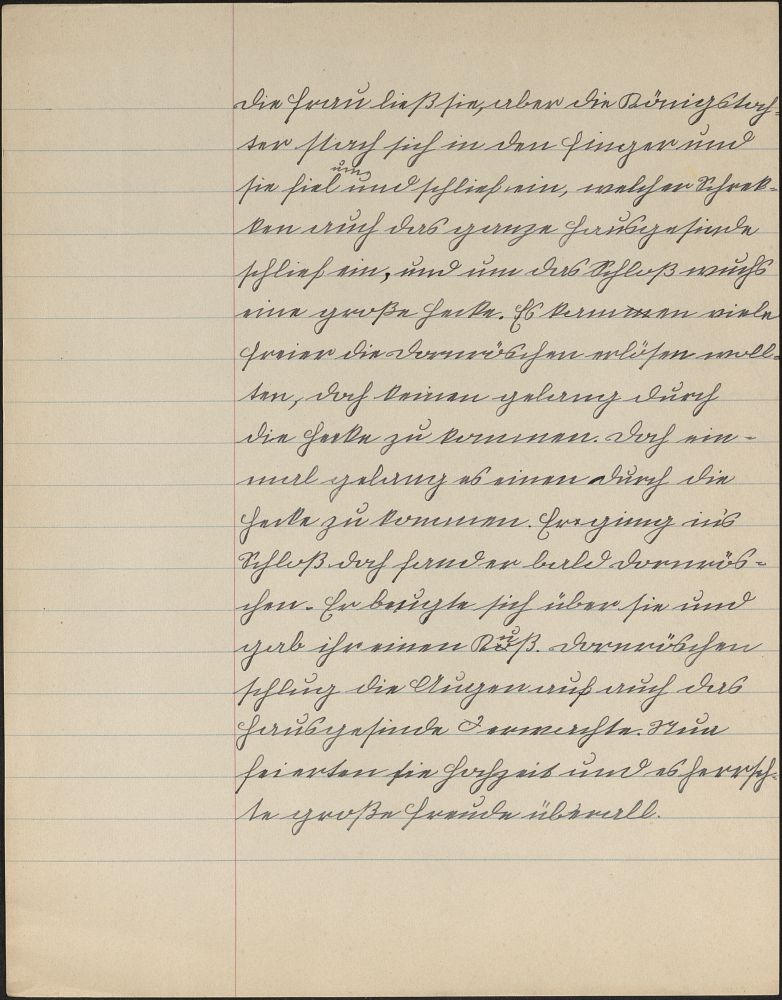 die Frau ließ sie, aber die Königstoch-
ter stach sich in den Finger und
sie fiel um und schlief ein, welcher Schrek-
ken auch das ganze Hausgesinde
schlief ein, und um das Schloß wuchs
eine große Hecke. Es kamen viele
Freier die Dornröschen erlösen woll-
ten, doch keinen gelang durch
die Hecke zu kommen. Doch ein-
mal gelang es einen durch die
Hecke zu kommen. Er ging in's
Schloß doch fand er bald Dornrös-
chen. Er beugte sich über sie und
gab ihr einen Kuß. Dornröschen
schlug die Augen auf auch das
Hausgesinde erwachte. Nun
feierten sie Hochzeit und es herrsch-
te große Freude überall.